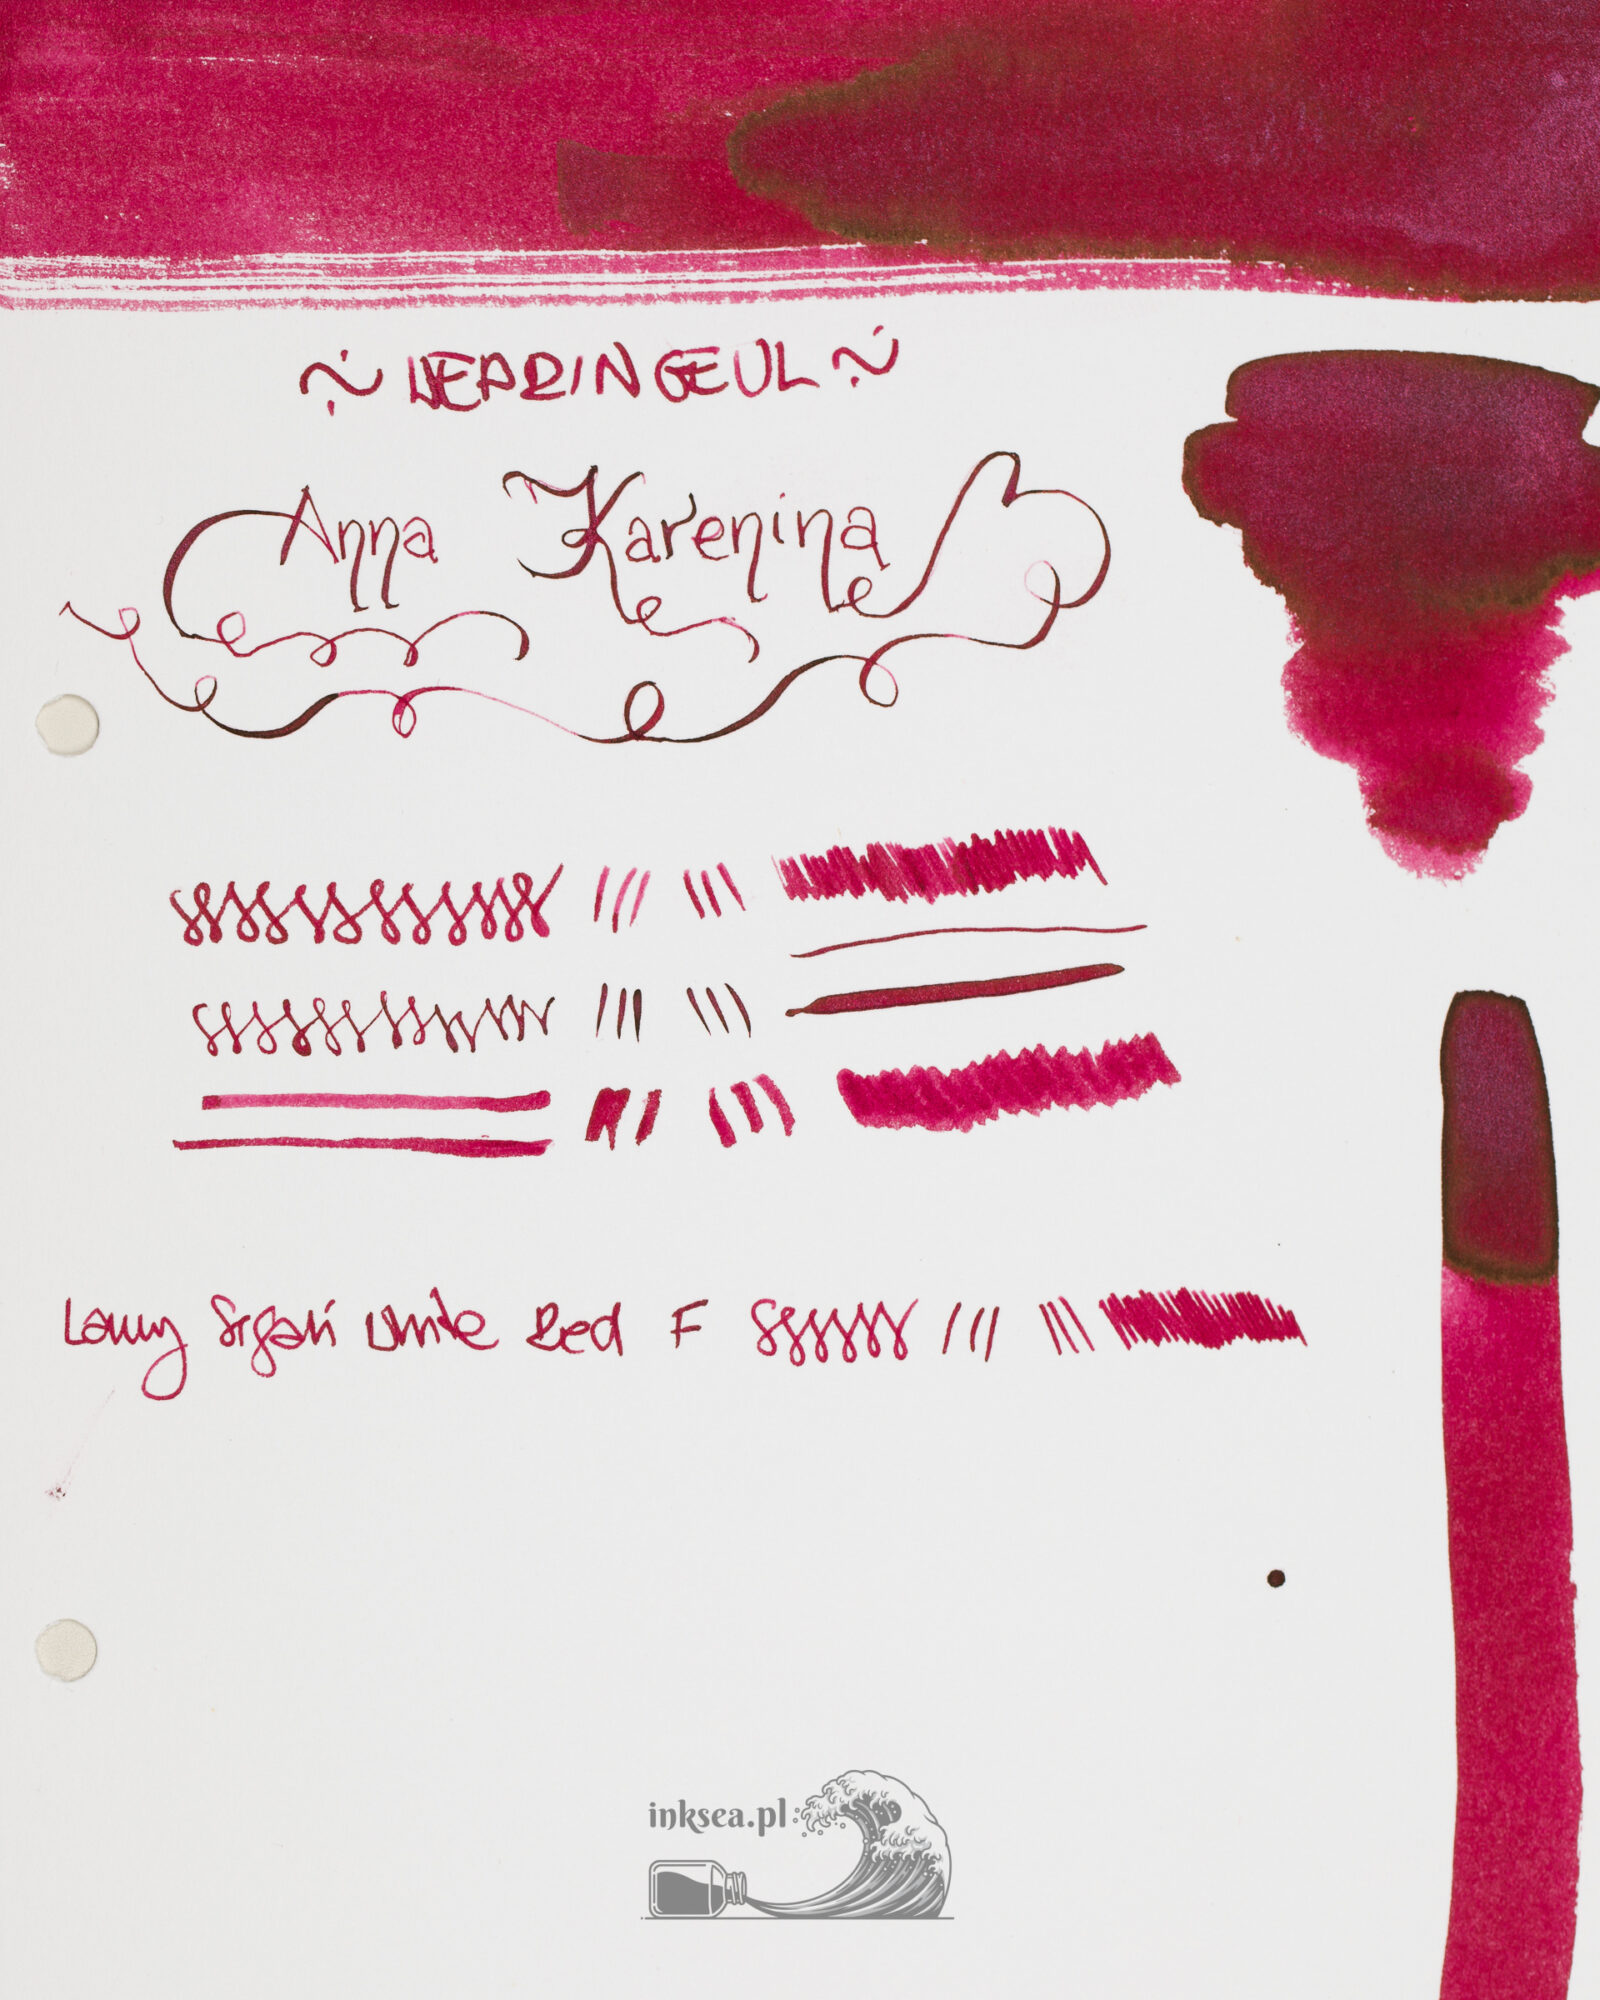 ~ WEARINGEUL ~
Anna Karenina
Lamy Safari White Red F
inksea.pl